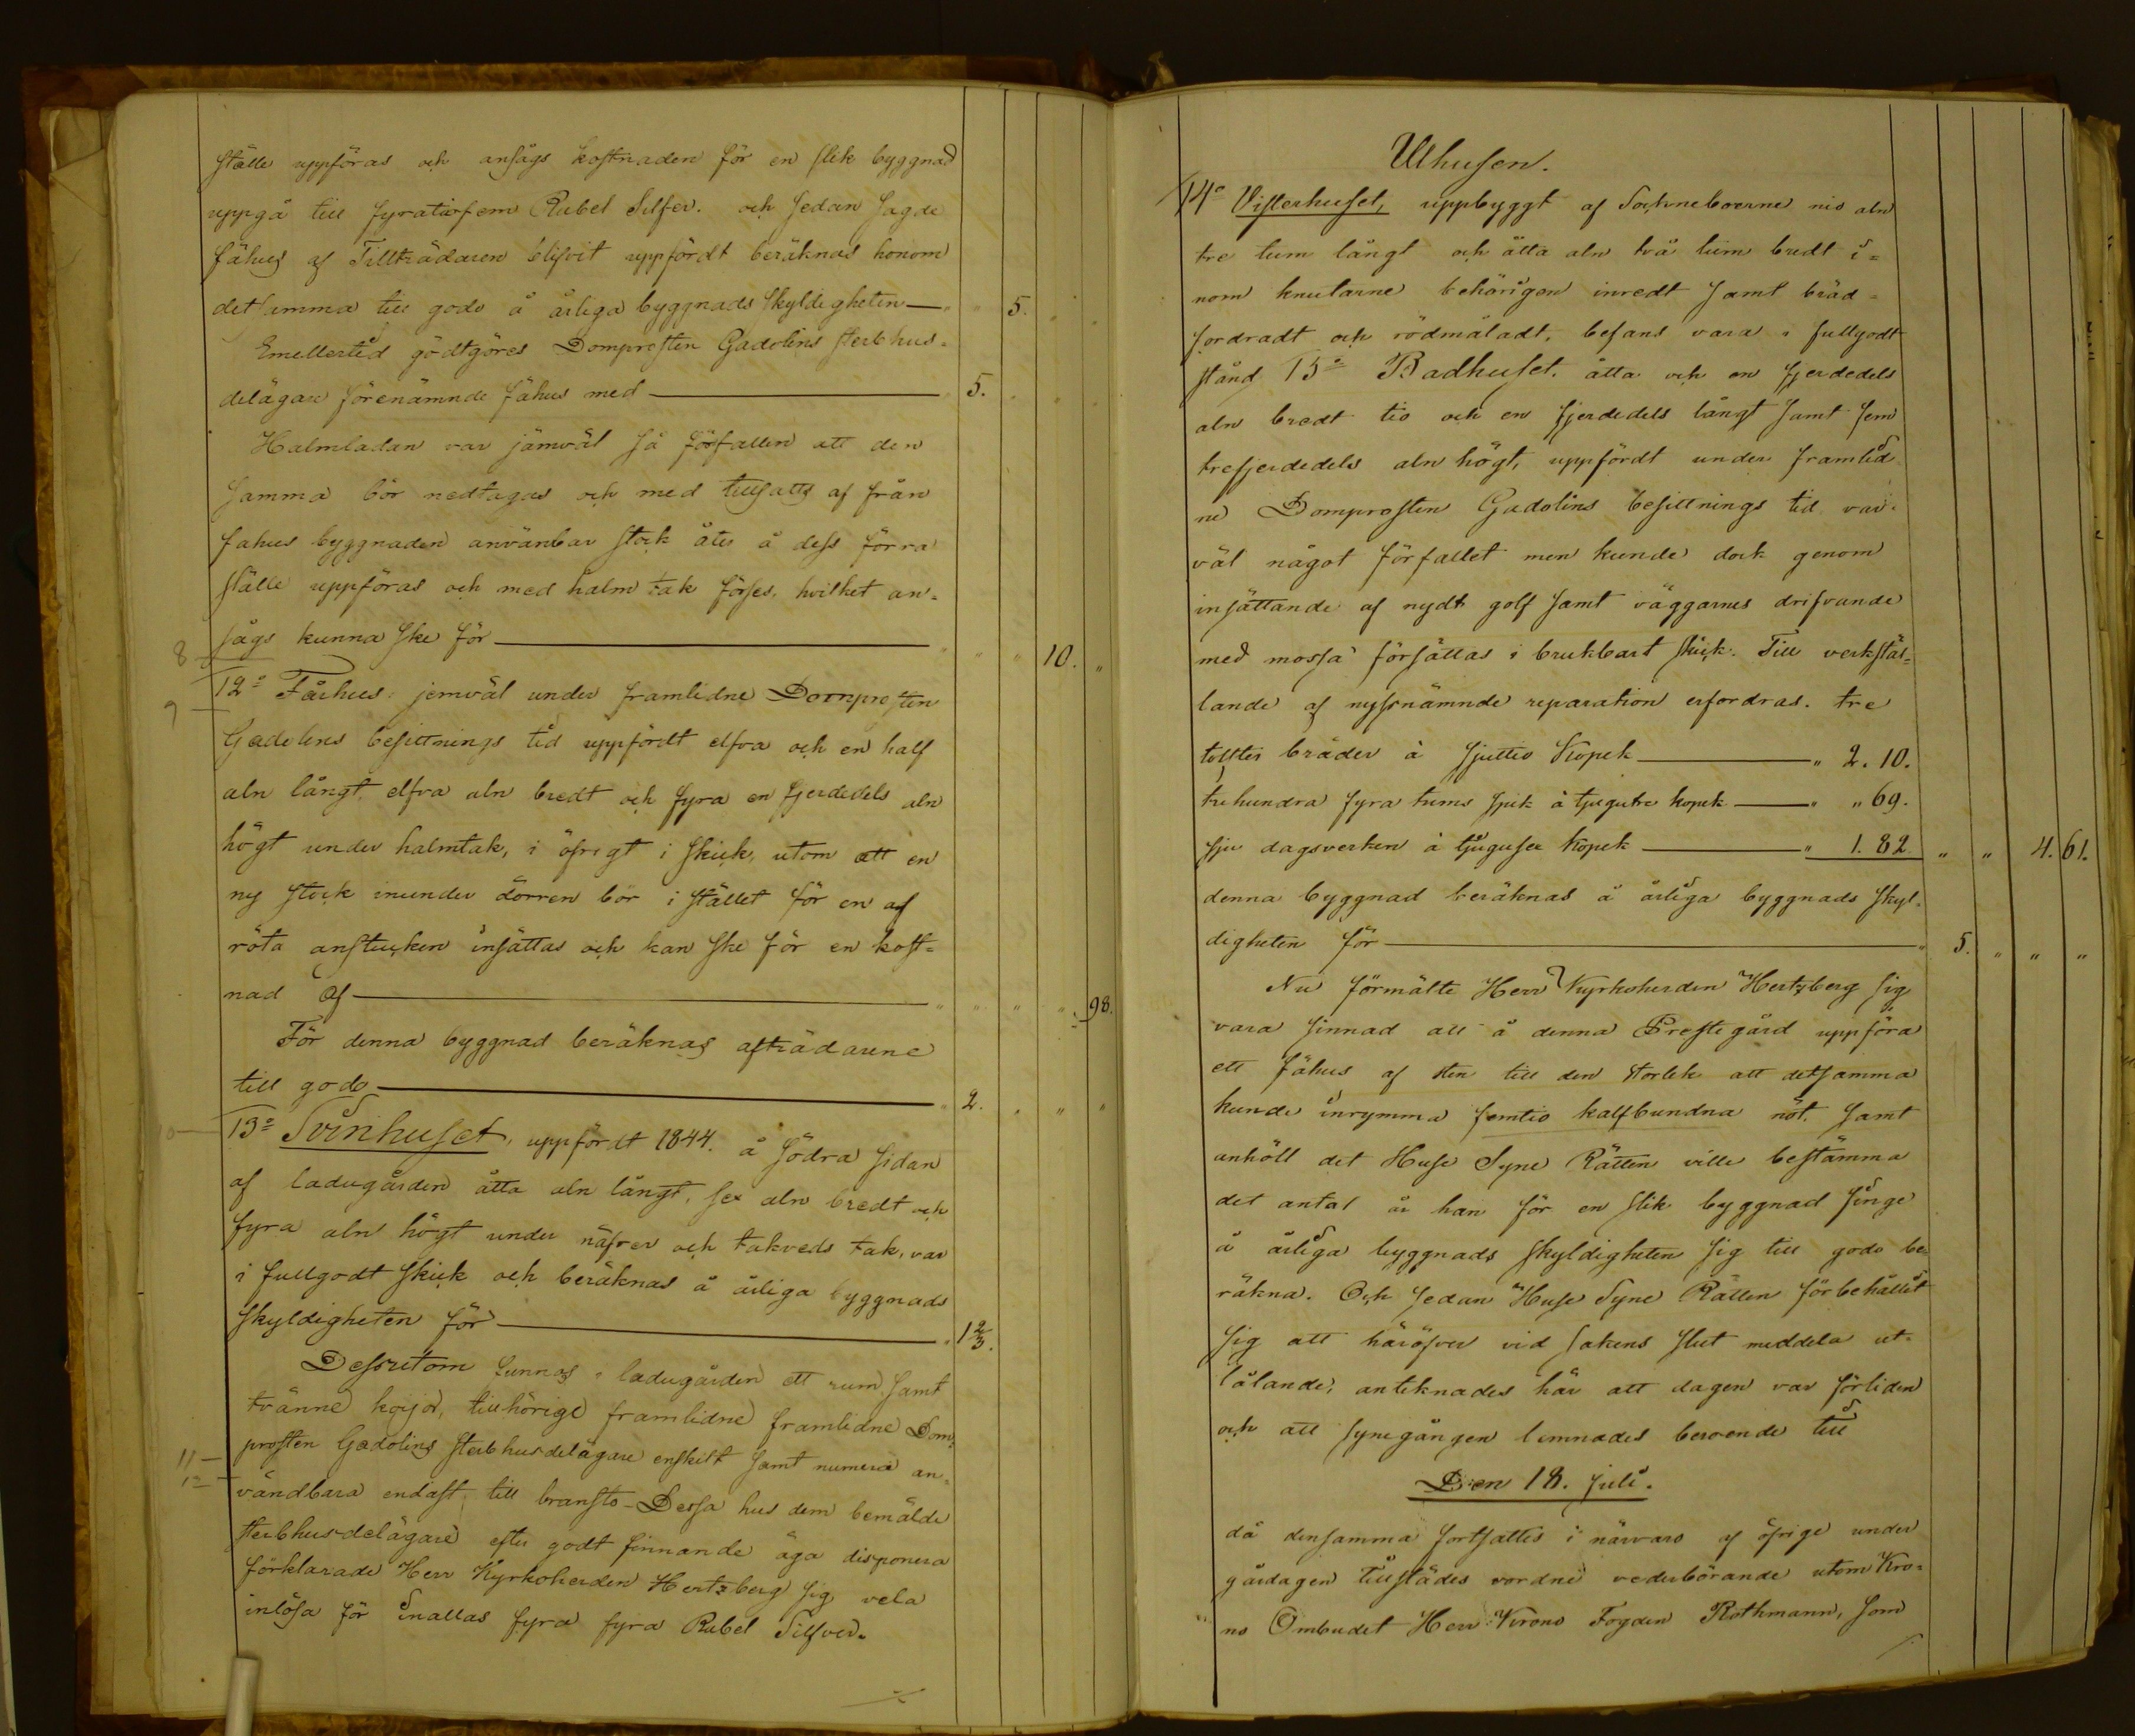 ställe uppföras och ansågs kostnaden för en slik byggnad
uppgå till fyratiofem Rubel Silfer. och sedan sagde
fähus af Tillträdaren blifvit uppfördt beräknas honom
detsamma till godo å årliga byggnads skyldigheten — " " 5.
Emellertid godtgöres Domprosten Gadolins sterbhus-
delägare förenämnde fähus med — 5.
Halmladan var jämväl så förfallen att den
samma bör nedtagas och med tillsatts af från
fahus byggnaden använbar stock åter å dess förra
ställe uppföras och med halm tak förses, hvilket an-
sågs kunna ske för — " " " 10. "
8
12o Fårhus: jemväl under framlidne Domprosten
9
Gadolins besittnings tid uppfördt elfva och en half
aln långt, elfva aln bredt och fyra en fjerdedels aln
högt under halmtak, i öfrigt i skick, utom att en
ny stock inunder dörren bör i stället för en af
röta anstucken insättas och kan ske för en kost-
nad af — " " " " 98.
För denna byggnad beräknas afträdarene
till godo — " 2. " " "
10 13o Svinhuset, uppfördt 1844. å södra sidan
af ladugården åtta aln långt, sex aln bredt och
fyra aln högt under näfver och takveds tak, var
i fullgodt skick och beräknas å årliga byggnads
skyldigheten för — " 1 2/3.
Dessutom funnos i ladugården ett rum samt
tvänne kojor, tillhörige framlidne framlidne Dom-
prosten Gadolins sterbhusdelägare enskilt samt numera an-
11
12
vändbara endast till bransto - Dessa hus dem bemälde
sterbhusdelägare efter godt finnande äga disponera
förklarade Herr Kyrkoherden Hertzberg sig vela
inlösa för inallas fyra fyra Rubel Silfver.
Uthusen.
14o Visterhuset, uppbyggt af Sockneboerne nio aln
tre tum långt och åtta aln två tum bredt i-
nom knutarne behörigen inredt samt bräd-
fordradt och rödmåladt, befans vara i fullgodt
stånd 15o Badhuset. åtta och en fjerdedels
aln bredt tio och en fjerdedels långt samt fem
trefjerdedels aln högt, uppfördt under framlid
ne Domprosten Gadolins besittnings tid var
väl något förfallet men kunde dock genom
insättande af nydt golf samt väggarnes drifvande
med mossa försättas i brukbart skick. Till verkstäl-
lande af nyssnämnde reparation erfordras. tre
tolfter bräder à sjuttio Kopek — " 2. 10.
trehundra fyra tums spik à tjugutre kopek — " " 69.
sju dagsverken à tjugusex Kopek — " 1. 82. " " 4. 61.
denna byggnad beräknas å årliga byggnads skyl-
digheten för — " 5. " " "
Nu förmälte Herr Kyrkoherden Hertzberg sig
vara sinnad att å denna Prestegård uppföra
ett fähus af sten till den storlek att detsamma
kunde inrymma femtio kalfbundna nöt. samt
anhöll det Huse Syne Rätten ville bestämma
det antal år han för en slik byggnad finge
å årliga byggnads skyldigheten sig till godo be-
räkna. Och sedan Huse Syne Rätten förbehållit
sig att häröfver vid sakens slut meddela ut-
låtande, anteknades här att dagen var förliden
och att synegången lemnades beroende till
Den 18. juli.
då densamma fortsattes i närvaro af öfrige under
gårdagen tillstädes vordne vederbörande utom Kro-
no Ombudet Herr Krono Fogden Rothmann, som